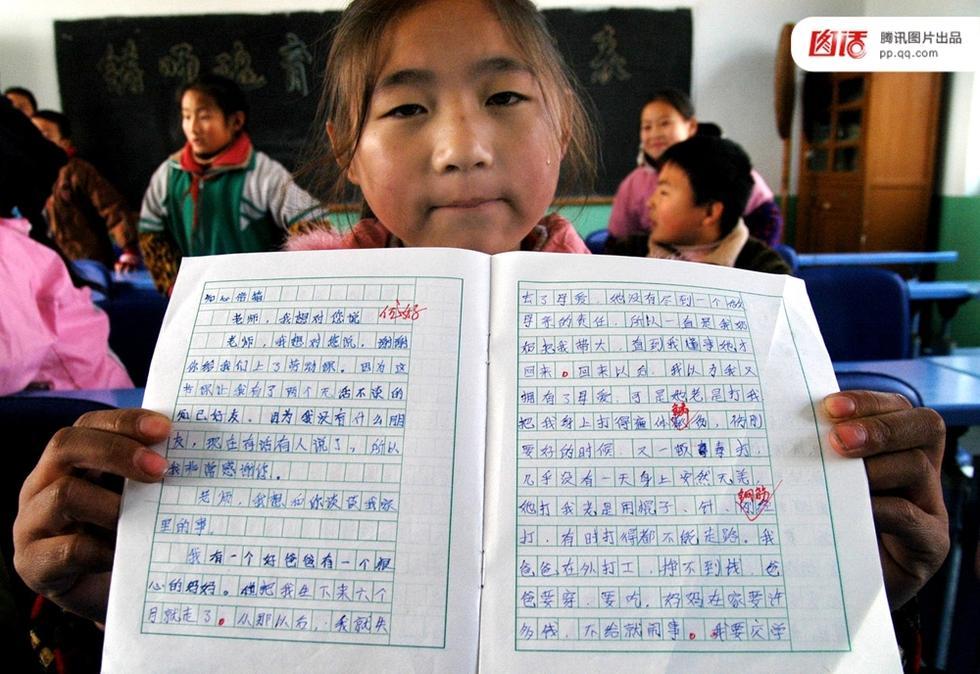 图话
腾讯图片出品
pp.qq.com
知心信箱
老师，我想对您说 你好
老师，我想对您说，谢谢
你给我们上了劳动课。因为这
节课让我有了两个无话不说的
知己好友。因为我没有什么朋
友，现在有话有人说了，所以
我非常感谢您。
老师，我想和你谈谈我家
里的事。
我有一个好爸爸有一个狠
心的妈妈。她把我生下来六个
月就走了。从那以后，我就失
去了母爱，她没有尽到一个做
母亲的责任，所以一直是我奶
奶把我带大，直到我懂事她才
回来。回来以后，我以为我又
拥有了母爱，可是她老是打我
把我身上打得遍体鳞伤，伤刚
要好的时候，又一顿毒打，
几乎没有一天身上安然无恙，
他打我老是用棍子、针、钢筋
打，有时打得都不能走路。我
爸爸在外打工，挣不到钱，爸
爸要穿、要吃，妈妈在家要许
多钱，不给就闹事。我要交学